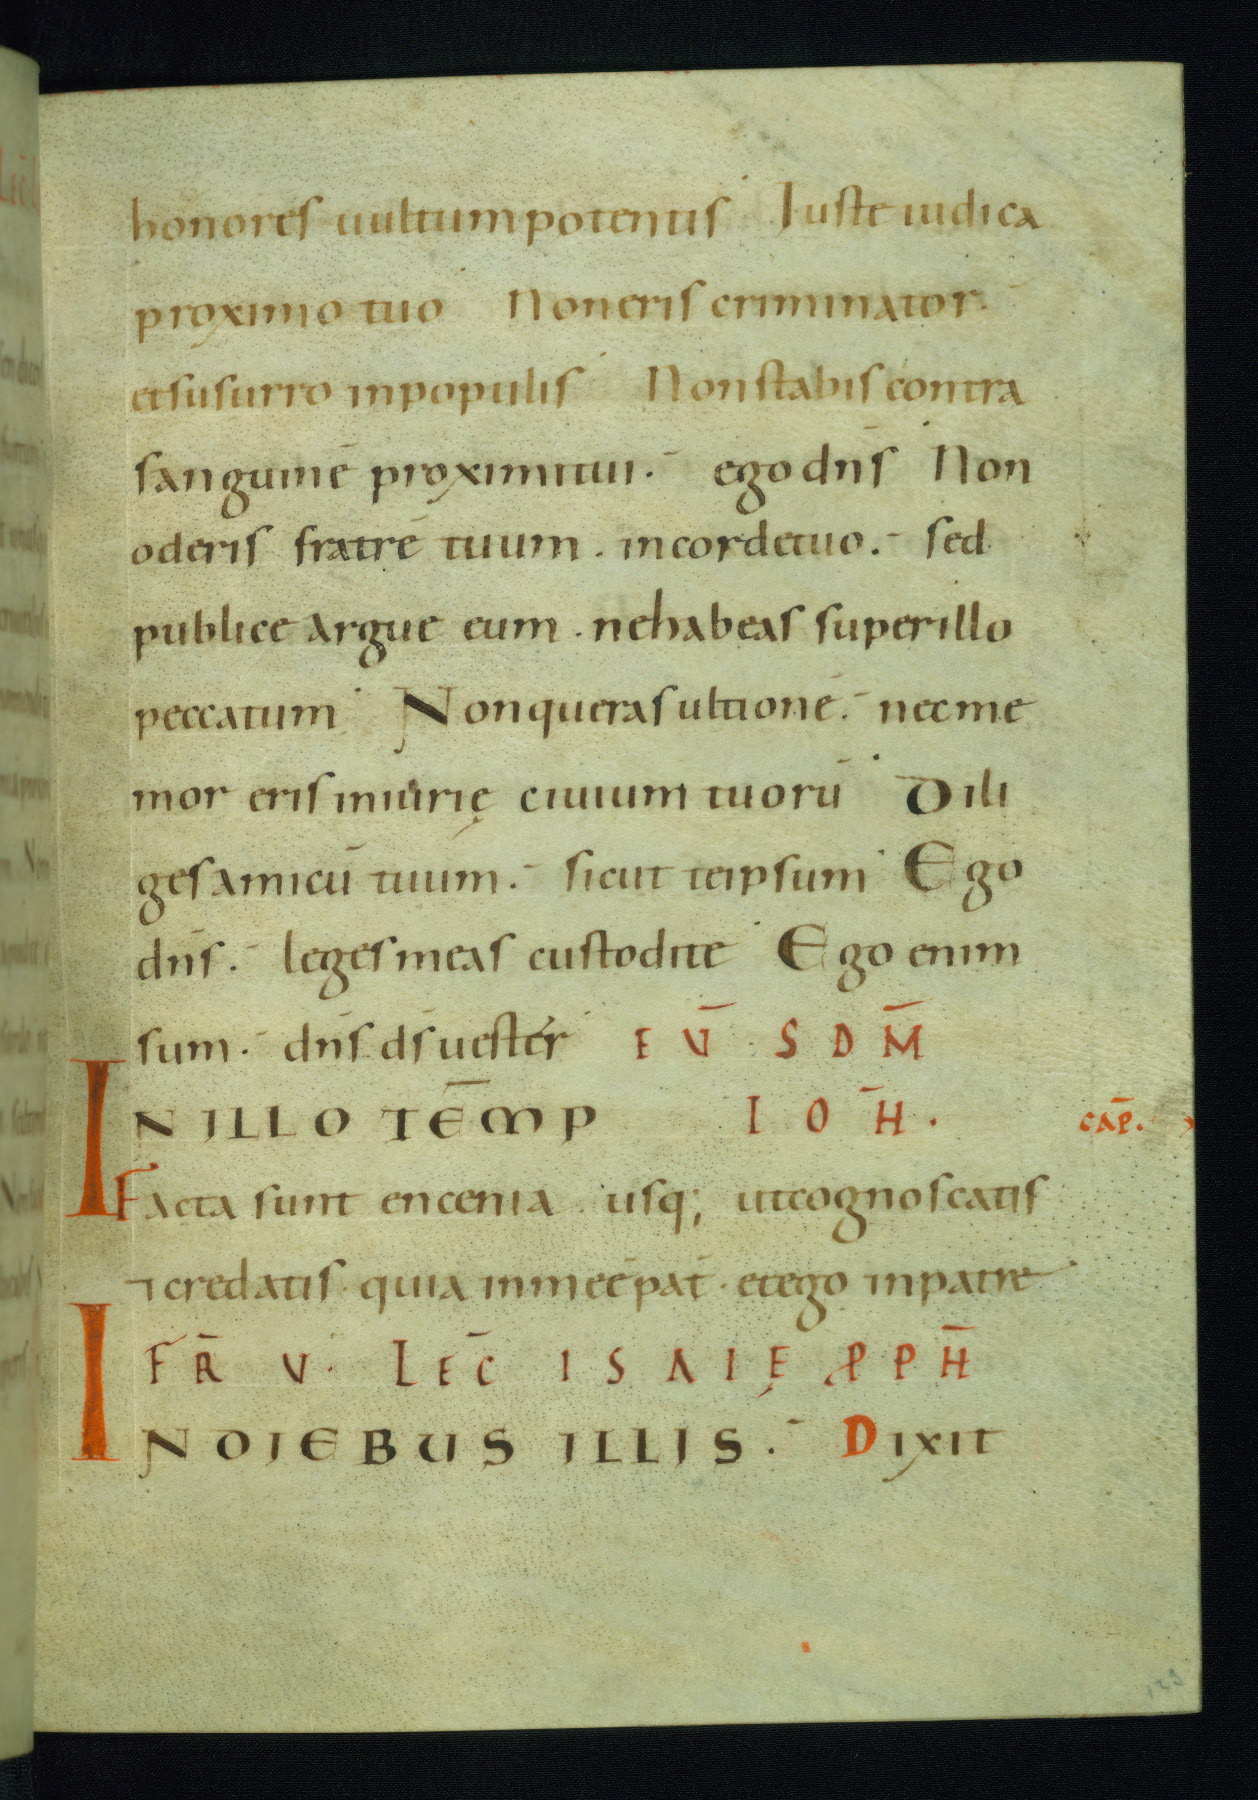 honores uultum potentis Iuste iudica
proximo tuo Non eris criminator.
et susurro in populis Non stabis contra
sanguinē proximi tui. ego dn̄s Non
oderis fratrē tuum. in corde tuo. sed
publice argue eum. ne habeas super illo
peccatum Non queras ultionē. nec me
mor eris iniurię ciuium tuorū Dili
ges amicū tuum. sicut te ipsum Ego
dn̄s. leges meas custodite Ego enim
sum. dn̄s ds̄ uester EŪ. SDM̄
IN ILLO TĒMP IOH̄. CAP̄.
Facta sunt encenia. usq; ut cognoscatis
⁊ credatis quia in me ē pat̄. et ego in patre
FR̄ V. LEC̄ ISAIĘ PPH̄
IN DIEBUS ILLIS. Dixit